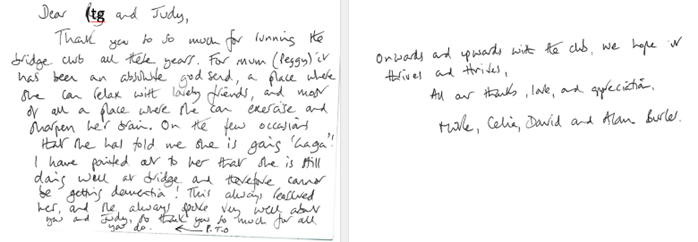 Dear (tg and Judy,
Thank you to so much for running the
bridge club all these years. For mum (Peggy) it
has been an absolute god send, a place where
she can relax with lovely friends, and most
of all a place where she can exercise and
sharpen her brain. On the few occasions
that she has told me she is going 'gaga'!
I have pointed out to her that she is still
doing well at bridge and therefore cannot
be getting dementia! This always reassured
her, and she always spoke very well about
you and Judy, so thank you so much for all
you do. ← P.T.O
Onwards and upwards with the club, we hope it
thrives and thrives,
All our thanks, love, and appreciation,
Celia, David and Alan